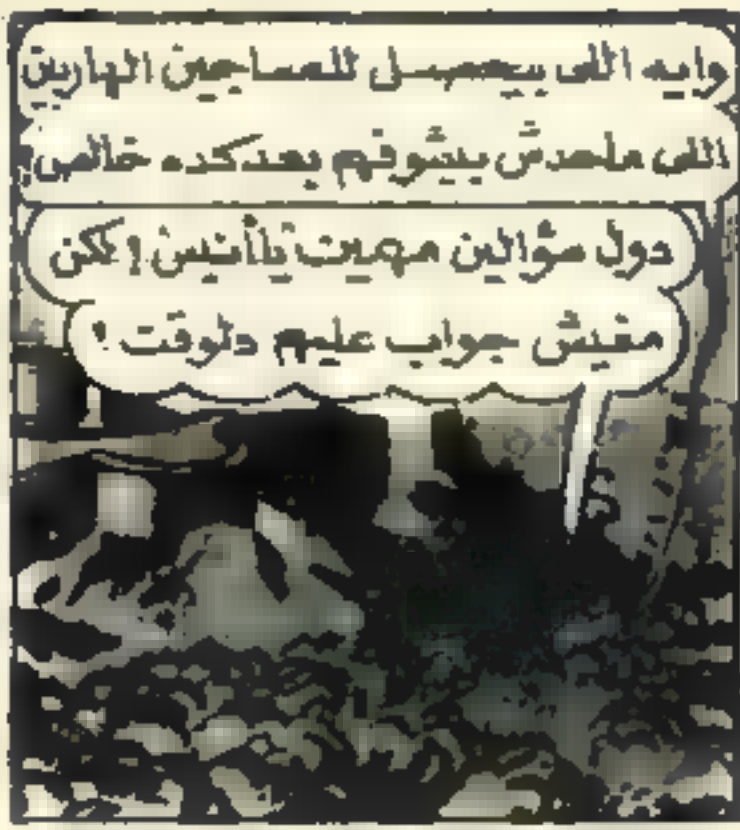 وايه اللى بيحصل للمساجين الهاربين
اللى ماحدش بيشوفهم بعد كده خالص؟
دول سؤالين مهمين يا أنيس! لكن
مفيش جواب عليهم دلوقت!